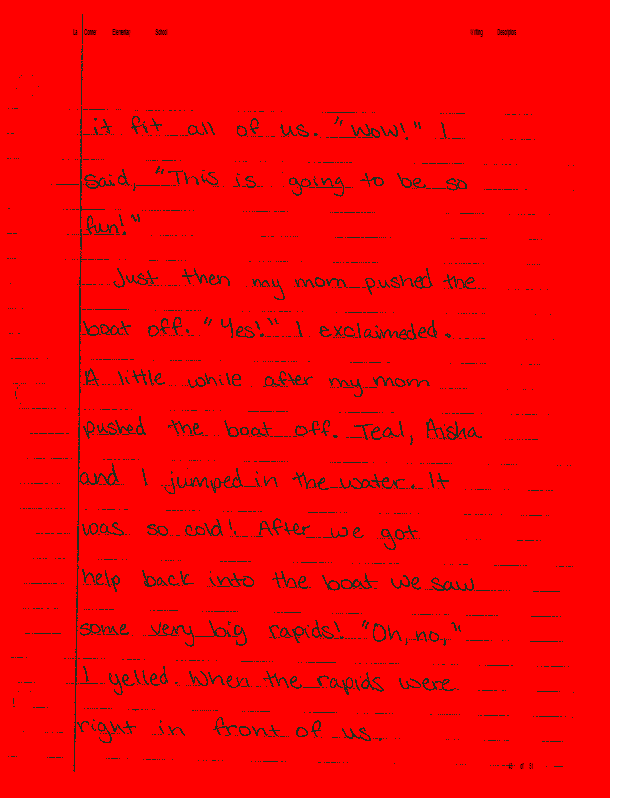 Elementary School Writing Description
it fit all of us. "Wow!" I
said, "This is going to be so
fun!"
Just then my mom pushed the
boat off. "Yes!" I exclaimeded.
A little while after my mom
pushed the boat off. Teal, Aisha
and I jumped in the water. It
was so cold! After we got
help back into the boat we saw
some very big rapids! "Oh, no,"
I yelled. When the rapids were
right in front of us.